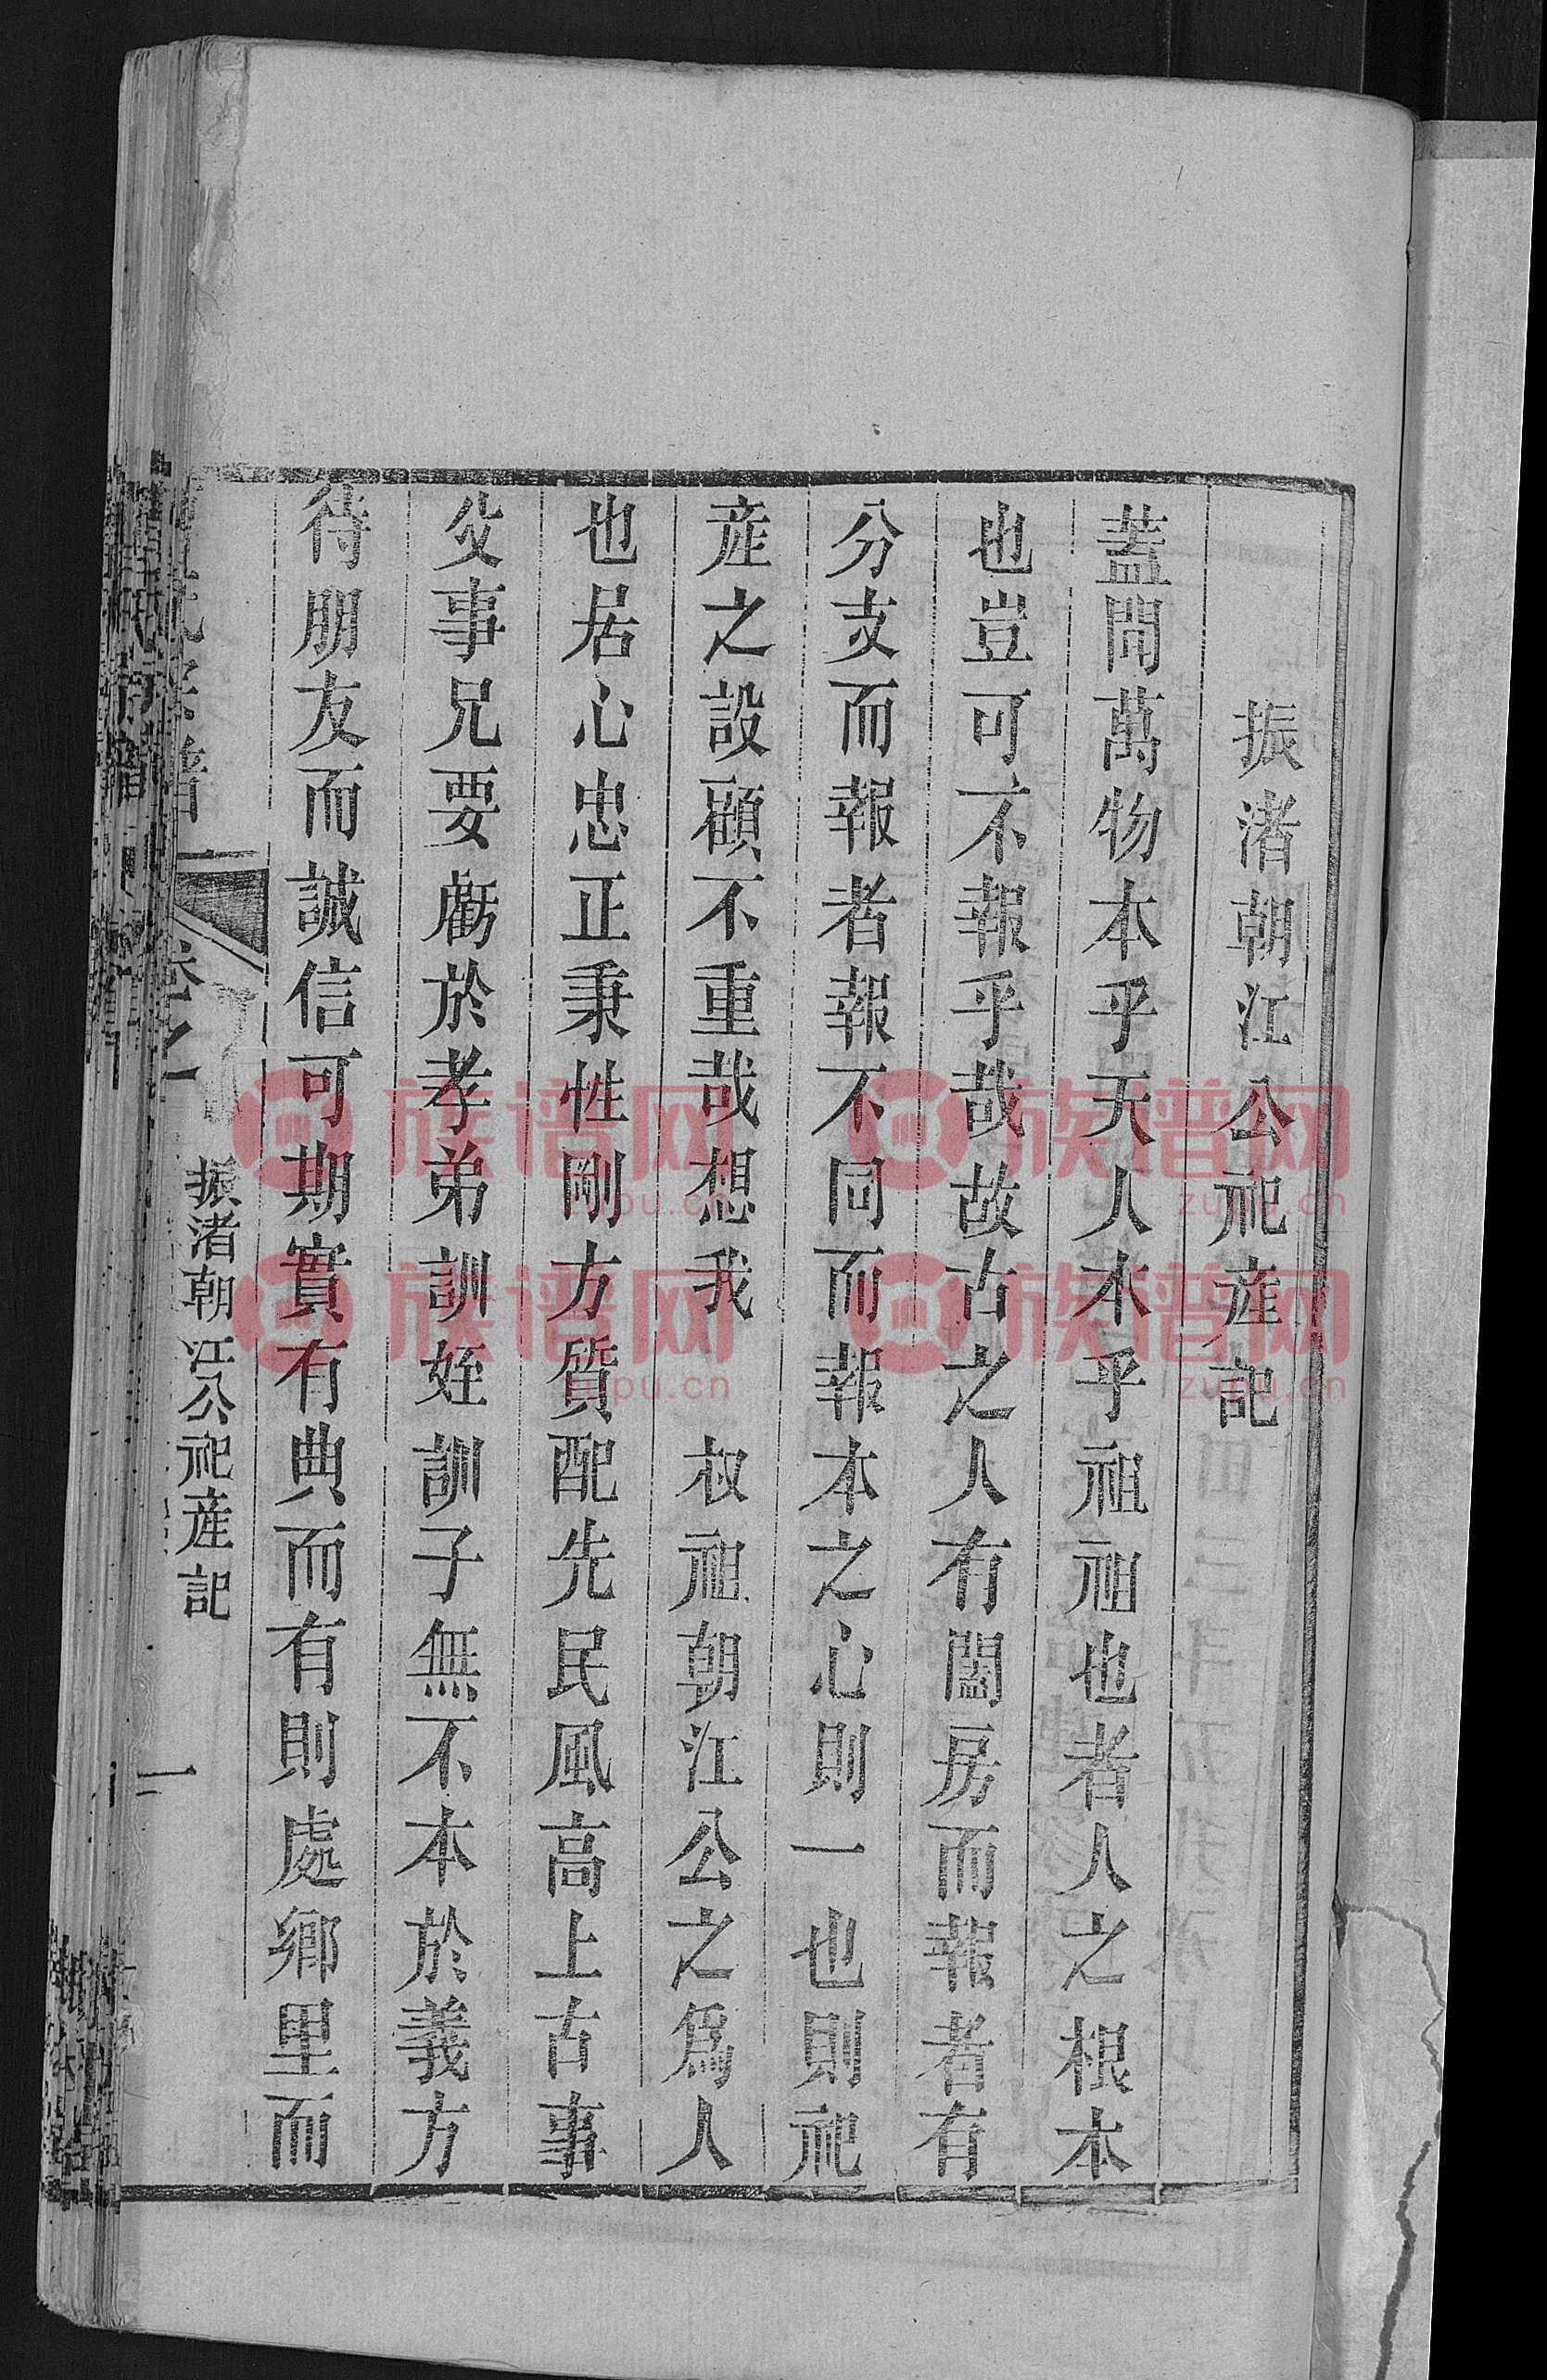 振渚朝江公祀産記
蓋聞萬物本乎天人本乎祖祖也者人之根本
也豈可不報乎哉故古之人有闔房而報者有
分支而報者報不同而報本之心則一也則祀
産之設顧不重哉想我 叔祖朝江公之爲人
也居心忠正秉性剛方質配先民風高上古事
父事兄要虧於孝弟訓姪訓子無不本於義方
待朋友而誠信可期實有典而有則處鄉里而
卷之
振渚朝江公祀産記
一
族谱网
zupu.cn
族谱网
zupu.cn
族谱网
zupu.cn
族谱网
zupu.cn